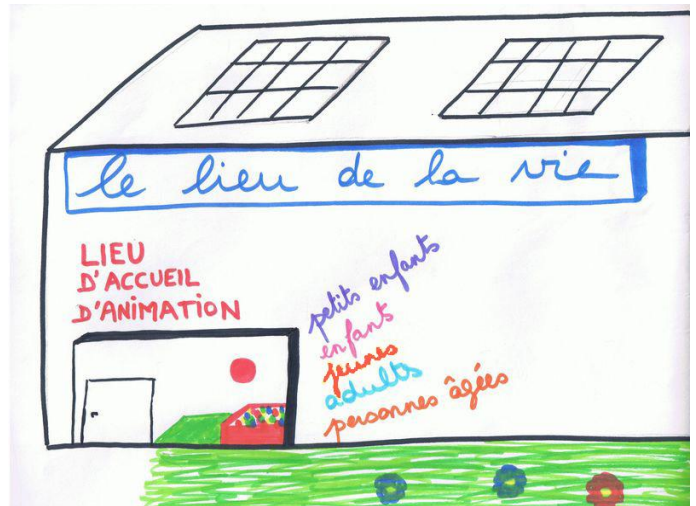 le lieu de la vie
LIEU
D'ACCUEIL
D'ANIMATION
petits enfants
enfants
jeunes
adultes
personnes âgées